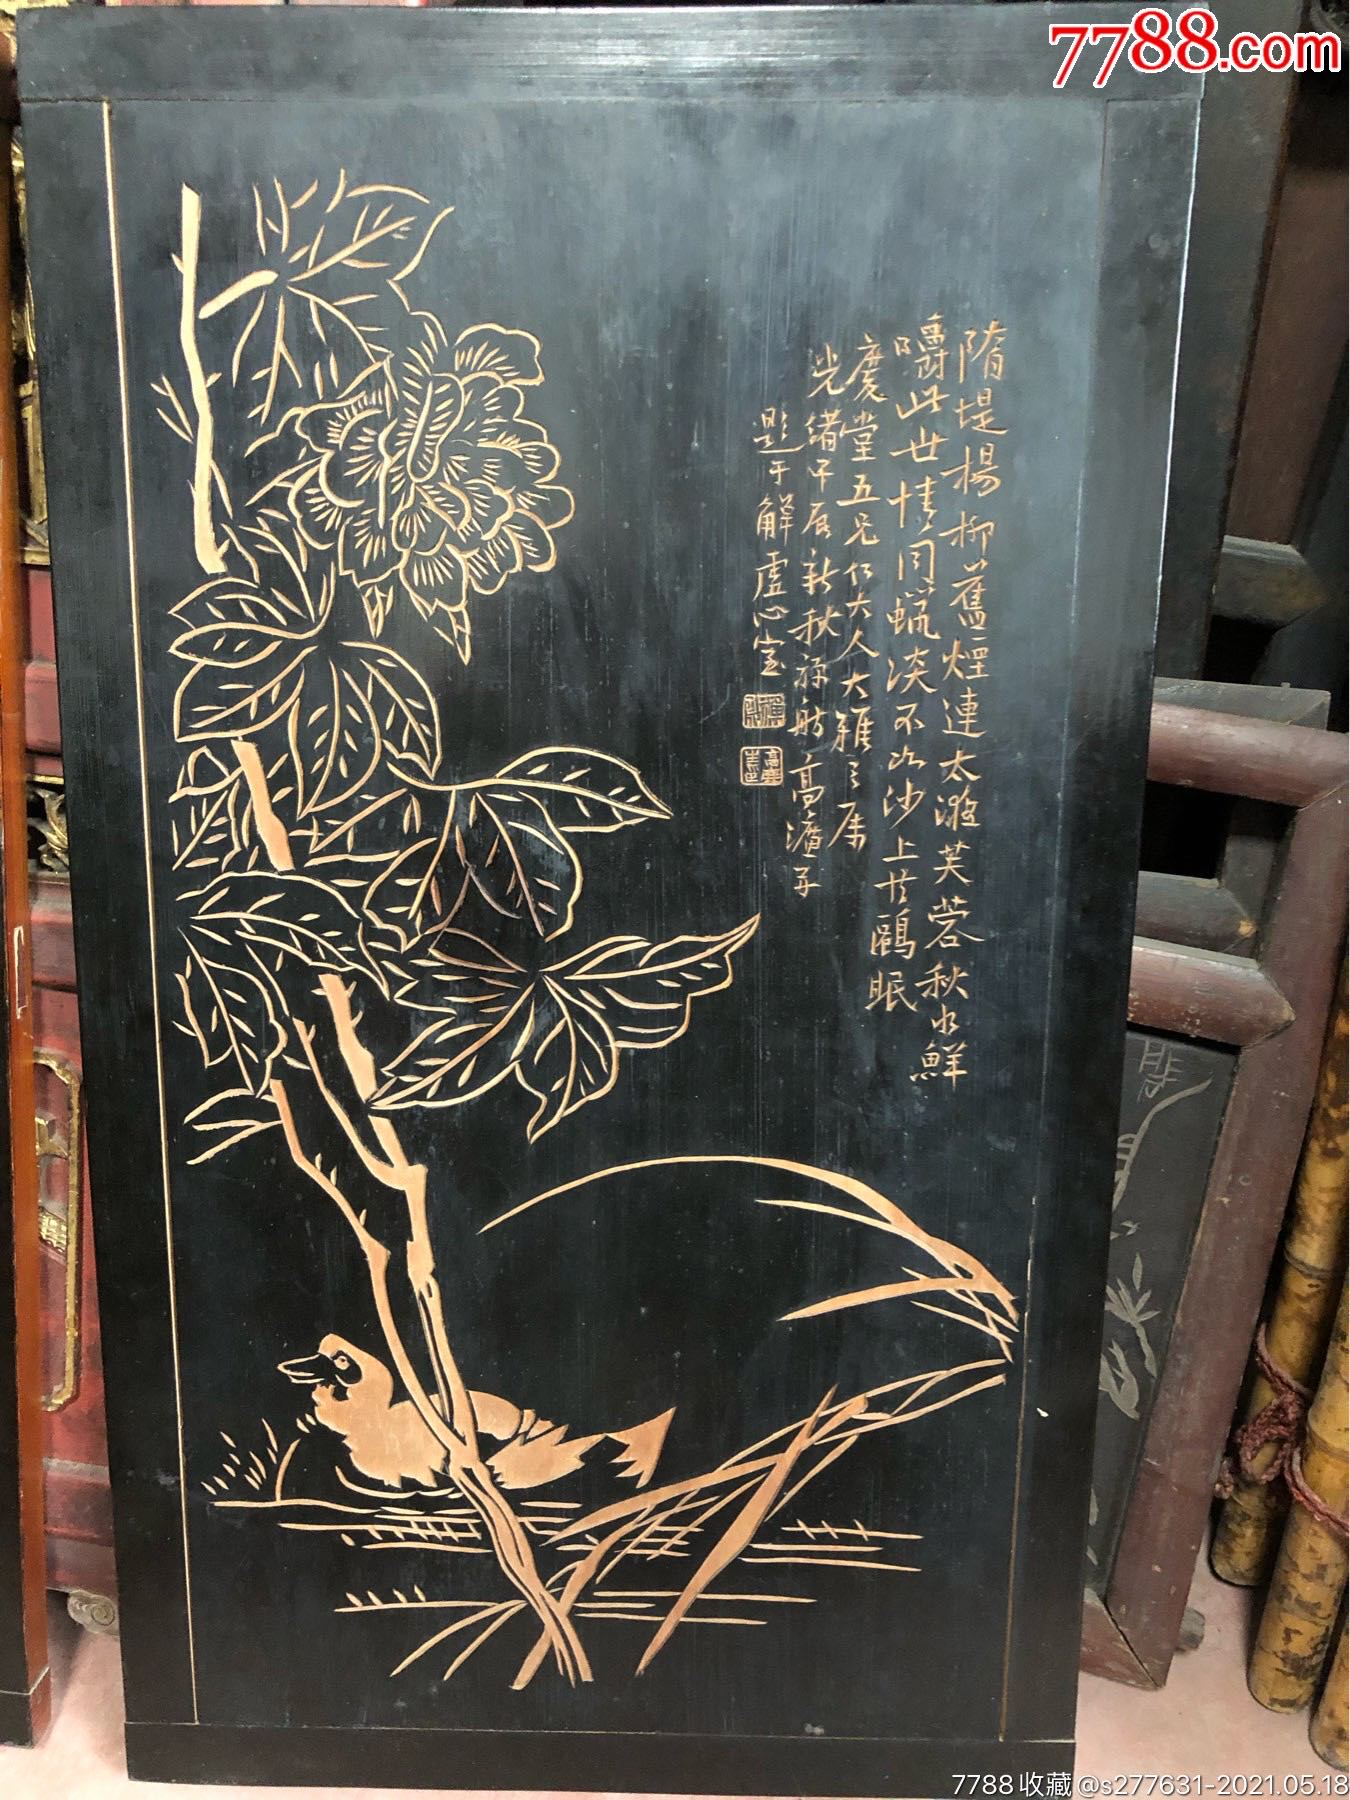 7788.com
隋堤楊柳舊煙連太液芙蓉秋水鮮
嚼此世情同蠟淡不如沙上共鷗眠
慶堂五兄仁大人大雅之属
光緒甲辰新秋 舫高
題于解虚心室
7788收藏@s277631-2021.05.18